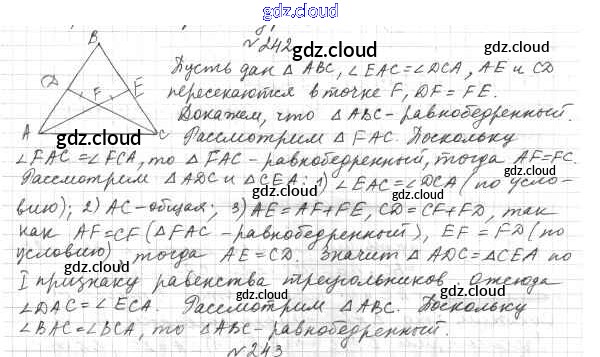 gdz.cloud
№242
gdz.cloud
B
gdz.cloud
Пусть дан △ ABC, ∠EAC=∠DCA, AE и CD
D F E
пересекаются в точке F, DF = FE.
Докажем, что △ ABC-равнобедренный.
A C
gdz.cloud
Рассмотрим △ FAC. Поскольку
gdz.cloud
∠FAC=∠FCA, то △ FAC-равнобедренный, тогда AF=FC.
Рассмотрим △ ADC и △CEA: 1) ∠EAC=∠DCA (по усло-
gdz.cloud
вию); 2) AC-общая; 3) AE=AF+FE, CD=CF+FD, так
gdz.cloud
как AF=CF (△FAC-равнобедренный), EF=FD (по
условию), тогда AE=CD. Значит △ADC=△CEA по
gdz.cloud
I признаку равенства треугольников. Отсюда
gdz.cloud
∠DAC=∠ECA. Рассмотрим △ABC. Поскольку
gdz.cloud
∠BAC=∠BCA, то △ABC-равнобедренный.
gdz.cloud
№243